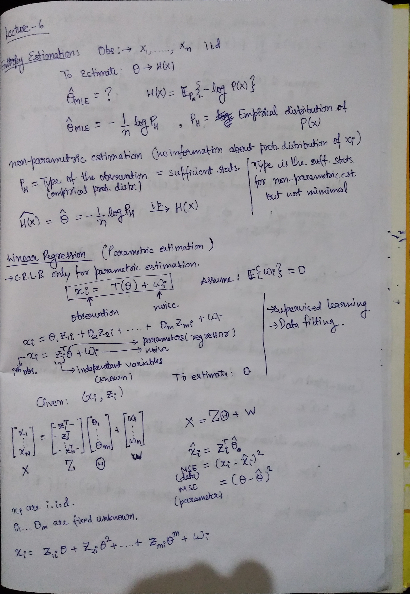 Lecture-6
Entropy Estimation: Obs:→ X₁ ..., Xₙ iid
To Estimate: θ → H(x)
θ̂_MLE = ? H(x) = E_Px{-log P(x)}
θ̂_MLE = -1/n log P_H , P_H = Empirical distribution of P(x)
non-parametric estimation (no information about prob. distribution of x_i)
P_H = Type of the observation = sufficient stats.
(empirical prob. distr.)
[Type is the suff. stats
for non-parametric est.
but not minimal
Ĥ(x) = θ̂ = -1/n log P_H → H(x)
Linear Regression (Parametric estimation)
→ C.R.L.B only for parametric estimation.
[x_i = T(θ) + ω_i] Assume: E{ω_i} = 0
observation noise.
→ supervised learning
→ Data fitting.
x_i = θ₁Z₁ᵢ + θ₂Z₂ᵢ + .... + θₘZₘᵢ + ω_i
x_i = z_iᵀθ + ω_i → parameters (regressor)
→ noise
obs. → independent variables
(known) To estimate: θ
Given: (x_i, z_i)
[x₁ ⋮ xₙ] = [-z₁ᵀ- z₂ᵀ ⋮ -zₙᵀ-] [θ₁ ⋮ θₘ] + [ω₁ ⋮ ωₙ] X = Zθ + W
X Z θ W
x̂_i = z_iᵀ θ̂
MSE (data) = (x_i - x̂_i)²
MSE (parameter) = (θ - θ̂)²
x_i are i.i.d.
θ₁... θₘ are fixed unknown.
x_i = Z₁ᵢθ + Z₂ᵢθ² + .... + Zₘᵢθᵐ + ω_i